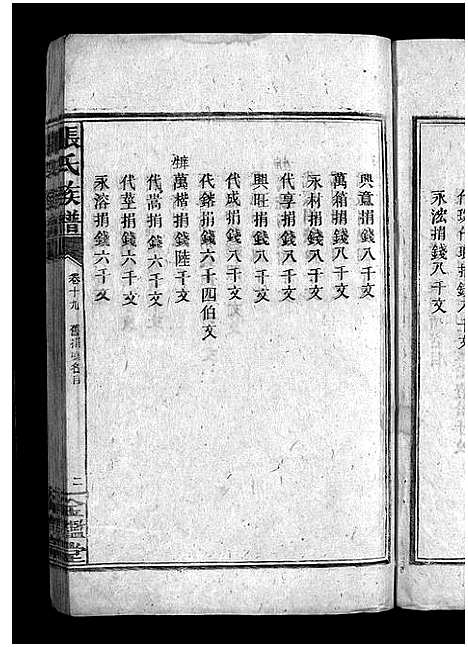 永浤捐錢八千文
興意捐錢八千文
萬箱捐錢八千文
永材捐錢八千文
代享捐錢八千文
興旺捐錢八千文
代成捐錢八千文
代鎔捐錢六千四伯文
萬楷捐錢陸千文
代嵩捐錢六千文
代莖捐錢六千文
永溶捐錢六千文
張氏族譜
卷十九
舊捐 名目
二
金鑑堂